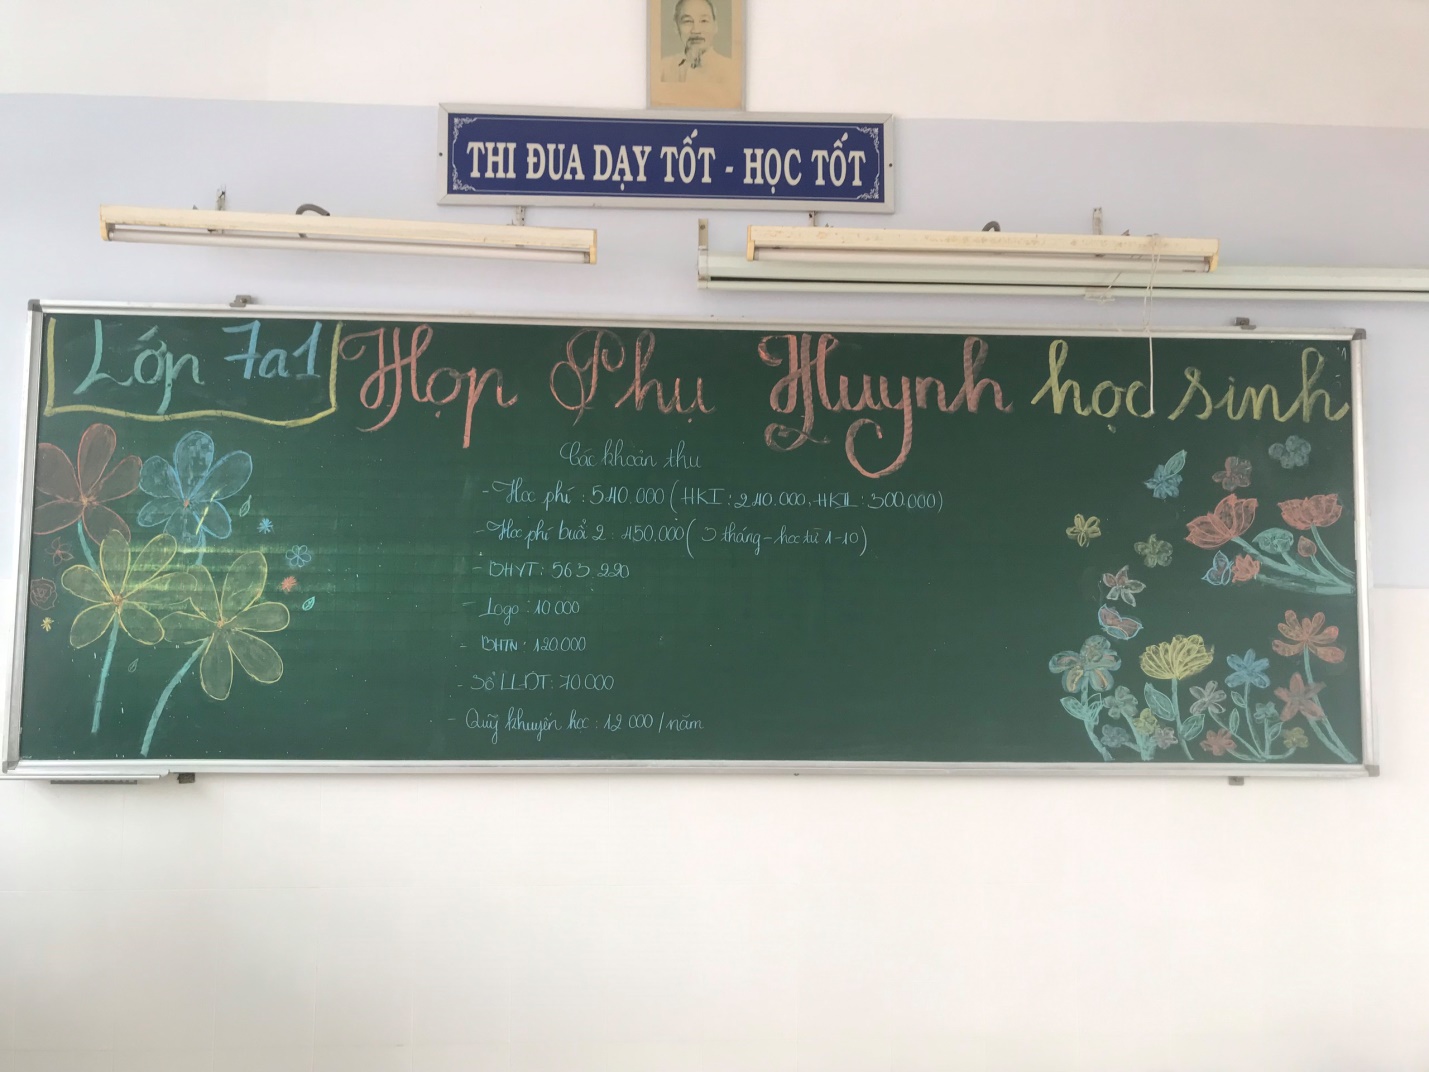 THI ĐUA DẠY TỐT - HỌC TỐT
Lớp 7a1 Họp Phụ Huynh học sinh
Các khoản thu
- Học phí : 540.000 ( HKI : 240.000, HKII : 300.000)
- Học phí buổi 2 : 450.000 ( 3 tháng - học từ 1-10)
- BHYT : 563.220
- Logo : 10.000
- BHTN : 120.000
- Sổ LLĐT: 70.000
- Quỹ khuyến học : 12.000 / năm